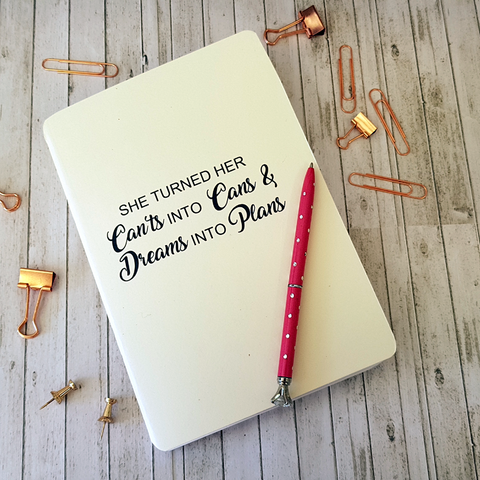 SHE TURNED HER
Can'ts INTO Cans &
Dreams INTO Plans